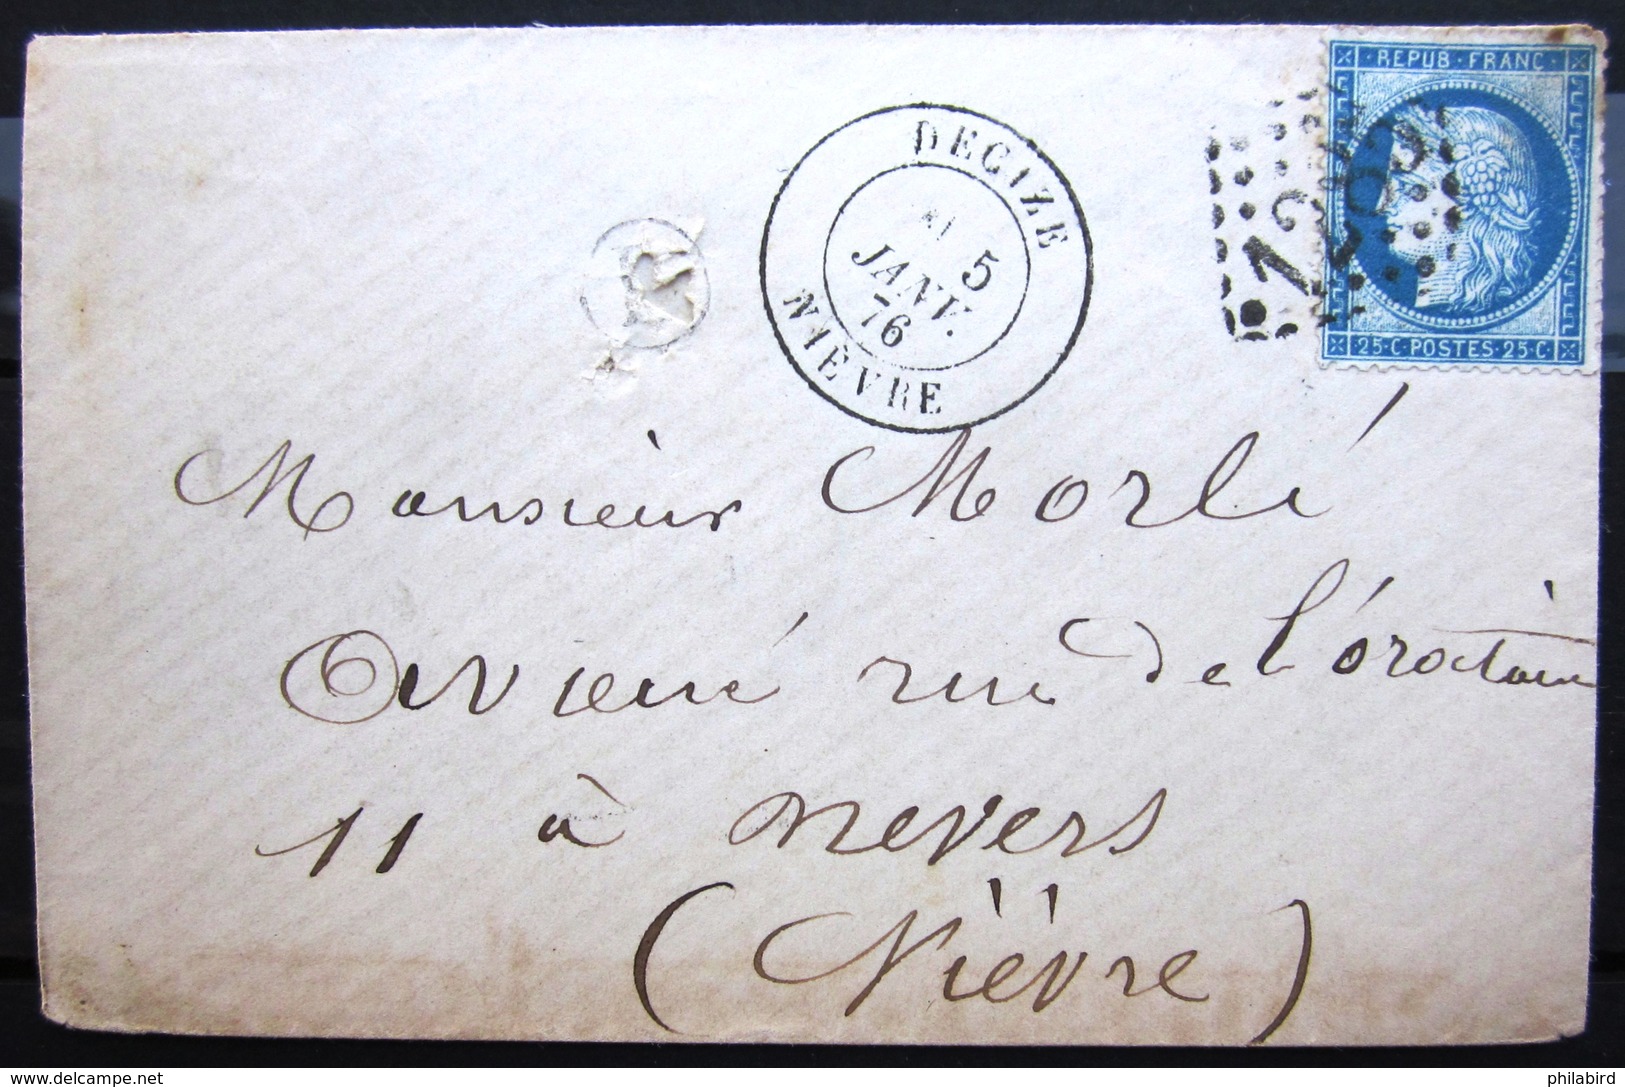 REPUB · FRANC
1283
25 · C · POSTES · 25 · C
DECIZE
5
JANV.
76
NIÈVRE
Monsieur Morlé
rue de l'oratoire
11 à nevers
(Nièvre)
delcampe.net
philabird